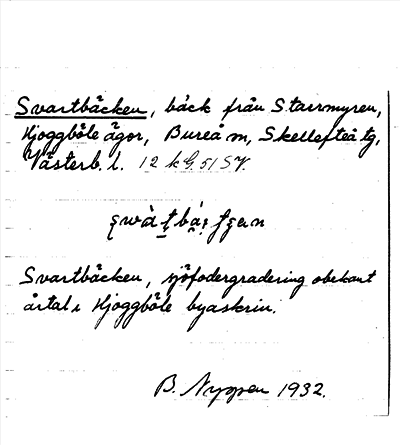 Svartbäcken, bäck från Starrmyren,
Hjoggböle ägor, Bureå sn, Skellefteå tg,
Västerb. l. 12 k G. 51 SV.
Svartbäcken, sjöfodergradering obekant
årtal i Hjoggböle byaskrin.
B. Nyman 1932.